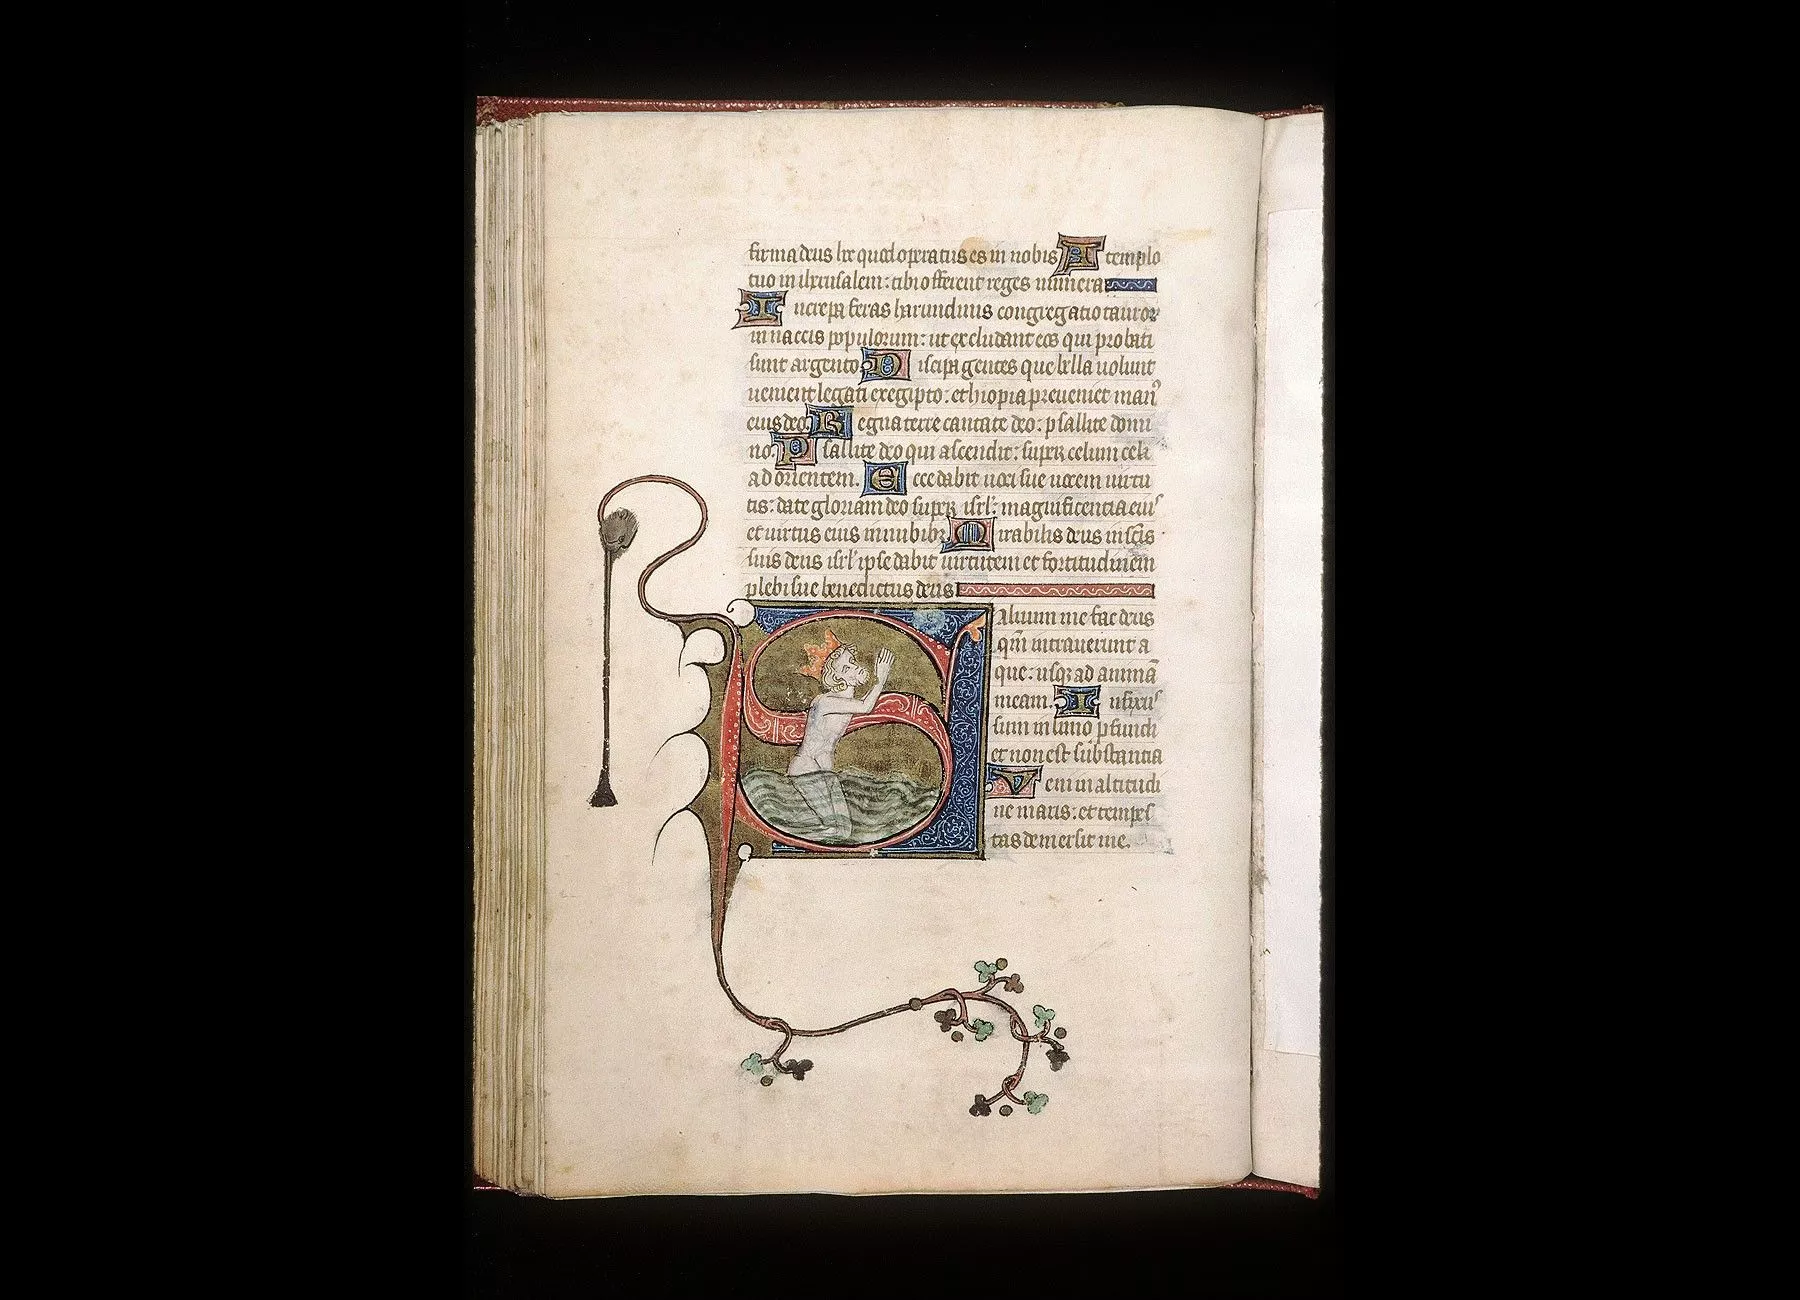 firma deus hoc quod operatus es in nobis A templo
tuo in iherusalem : tibi offerent reges munera
Increpa feras harundinis congregatio tauror
in uaccis populorum : ut excludant eos qui probati
sunt argento Dissipa gentes que bella uolunt
uenient legati ex egipto : ethiopia preueniet man
eius deo. Regna terre cantate deo : psallite domi
no. Psallite deo qui ascendit : super celum celi
ad orientem. Ecce dabit uoci sue uocem uirtu
tis : date gloriam deo super isrl : magnificentia eius
et uirtus eius in nubibz Mirabilis deus in scis
suis deus isrl ipse dabit uirtutem et fortitudinem
plebi sue benedictus deus
Saluum me fac deus
qm intrauerunt a
que : usqz ad animā
meam. Infixus
sum in limo pfundi
et non est substantia
Veni in altitudi
ne maris : et tempes
tas demersit me.